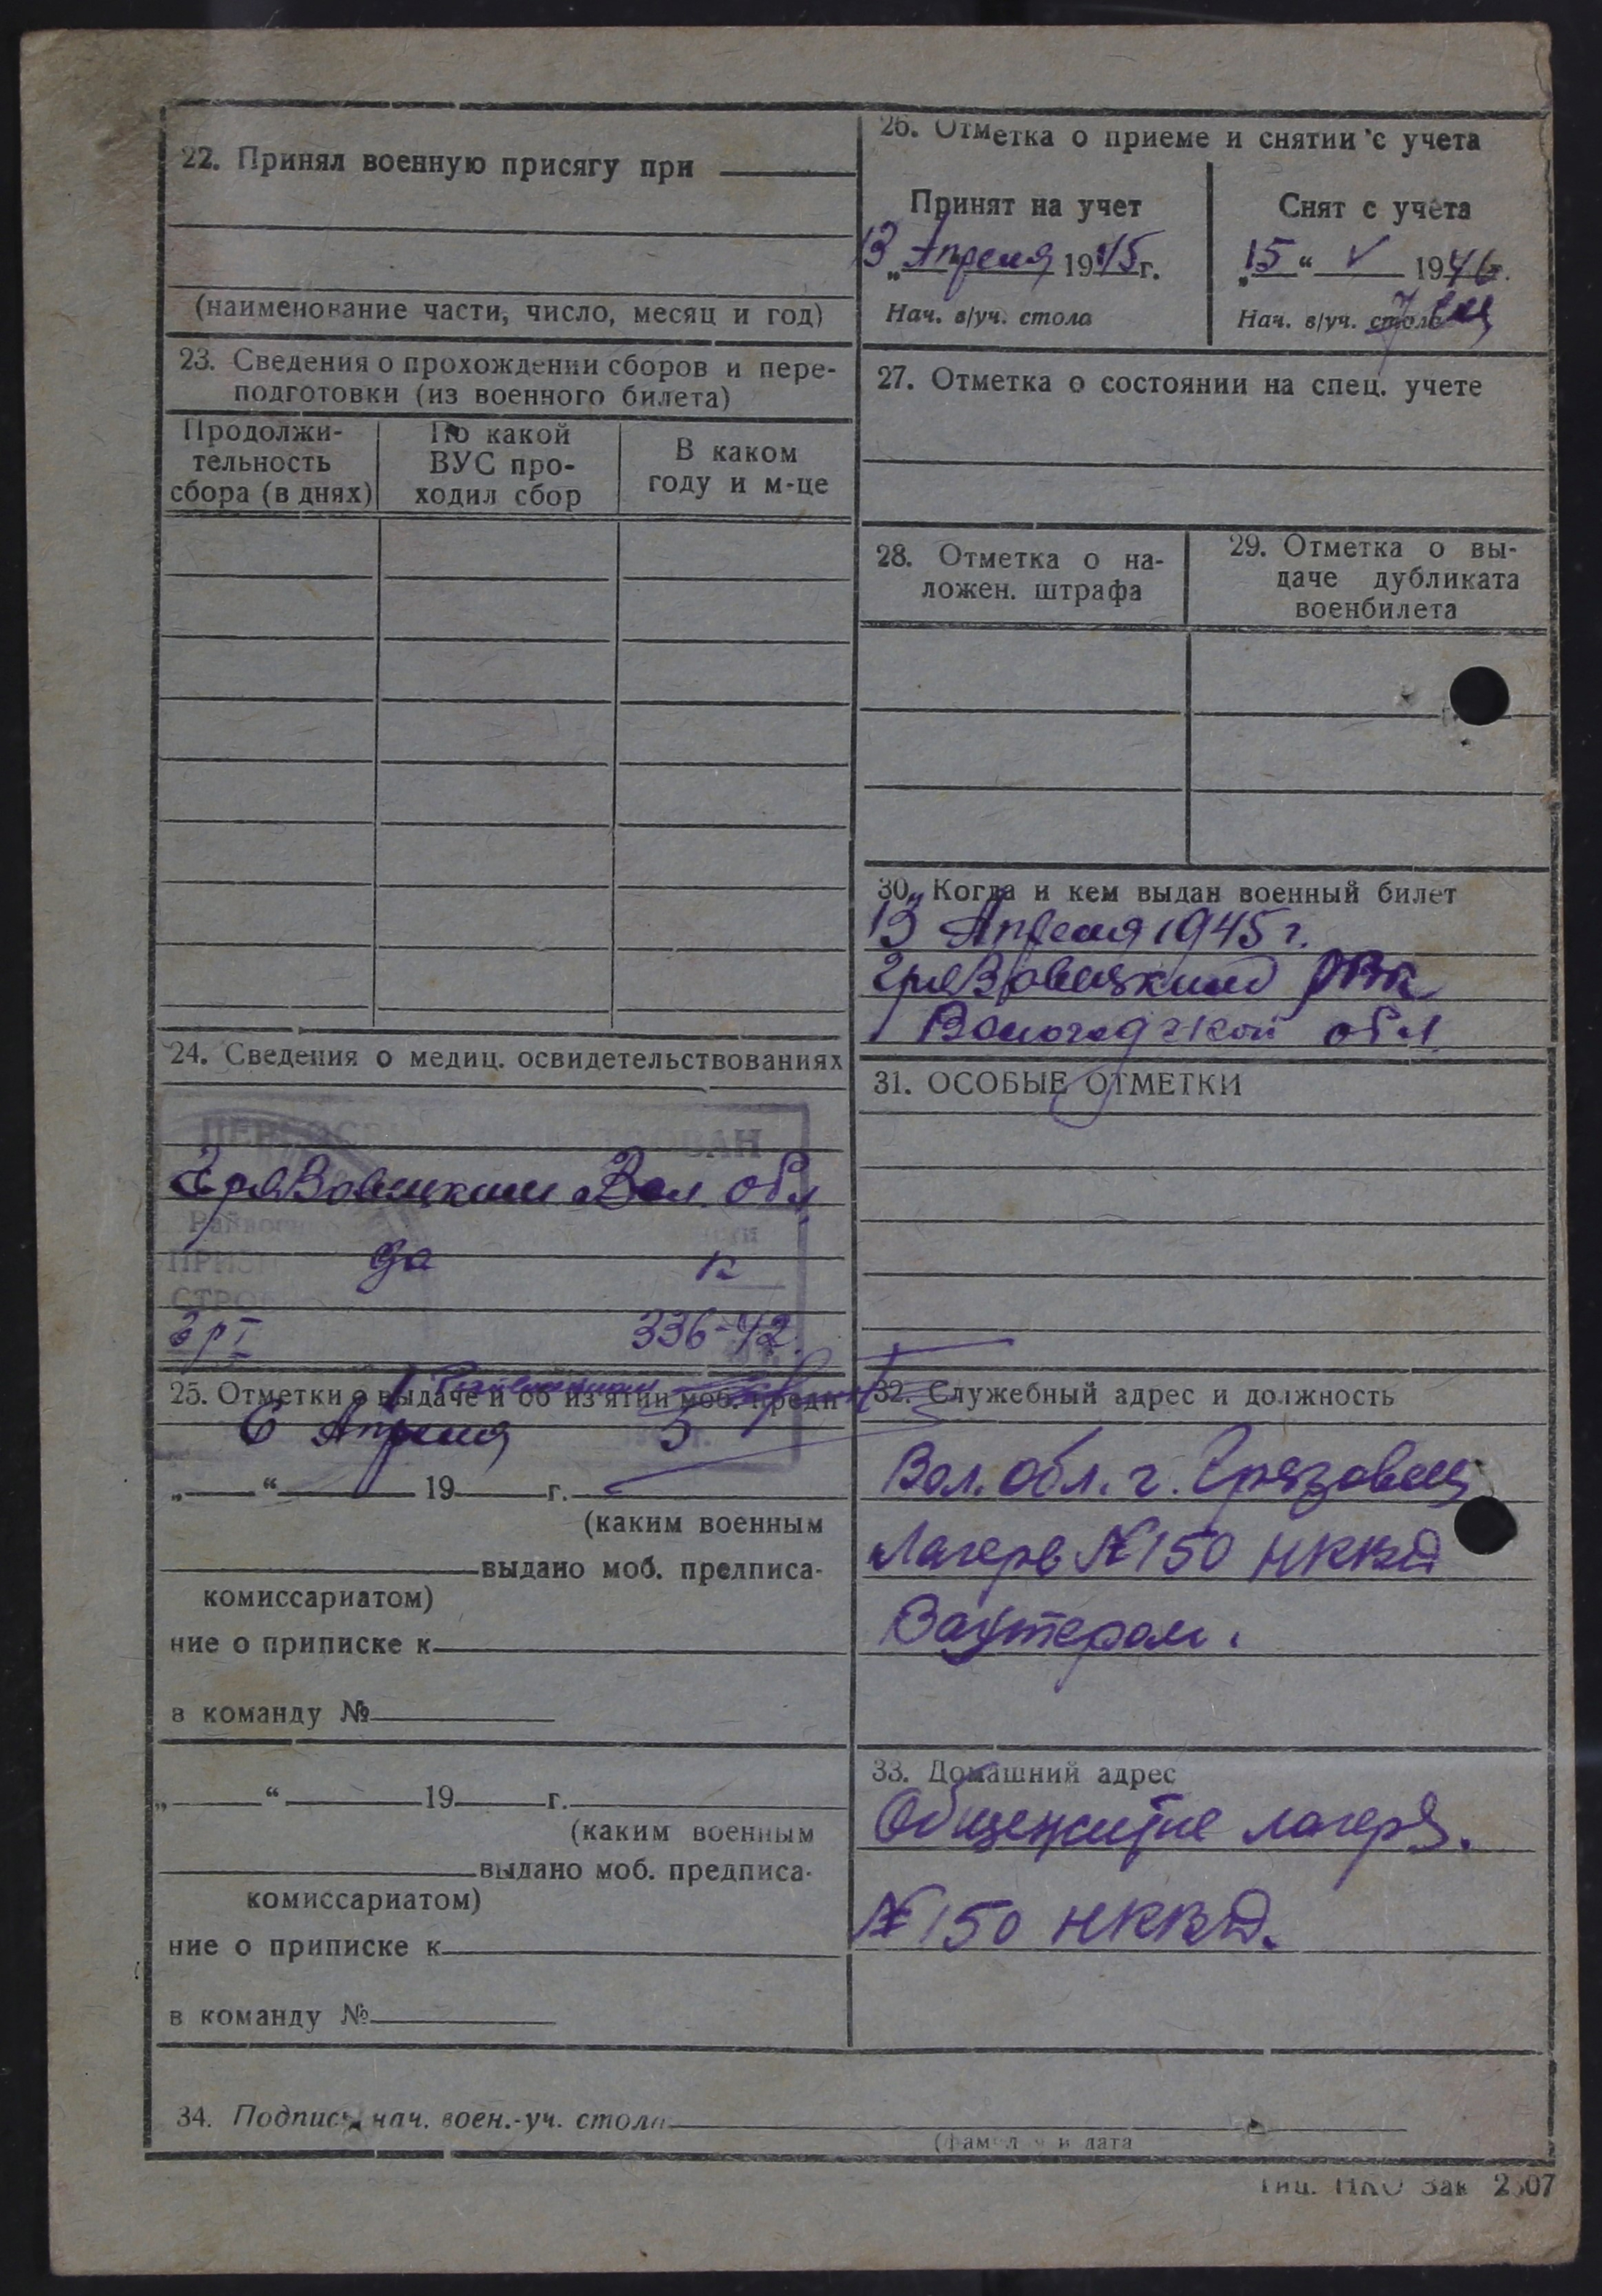 22. Принял военную присягу при
(наименование части, число, месяц и год)
23. Сведения о прохождении сборов и пере-
подготовки (из военного билета)
Продолжи-
тельность
сбора (в днях)
По какой
ВУС про-
ходил сбор
В каком
году и м-це
24. Сведения о медиц. освидетельствованиях
Грязовецким Вол. обл.
да
гр I 336-42.
25. Отметки о выдаче и об изъятии моб. предп
6 Апреля 5
„ “ 19 г.
(каким военным
выдано моб. предписа-
комиссариатом)
ние о приписке к
в команду №
„ “ 19 г.
(каким военным
выдано моб. предписа-
комиссариатом)
ние о приписке к
в команду №
26. Отметка о приеме и снятии с учета
Принят на учет
13 Апреля 1945г.
Нач. в/уч. стола
Снят с учета
„15“ V 1946г.
Нач. в/уч. стола
27. Отметка о состоянии на спец. учете
28. Отметка о на-
ложен. штрафа
29. Отметка о вы-
даче дубликата
военбилета
30. Когда и кем выдан военный билет
13 Апреля 1945 г.
Грязовецким РВК
Вологодской обл
31. ОСОБЫЕ ОТМЕТКИ
32. Служебный адрес и должность
Вол. обл. г. Грязовец
Лагерь №150 НКВД
Вахтером.
33. Домашний адрес
Общежитие лагеря.
№150 НКВД.
34. Подпись нач. воен.-уч. стола
и дата
Тип. НКО Зак